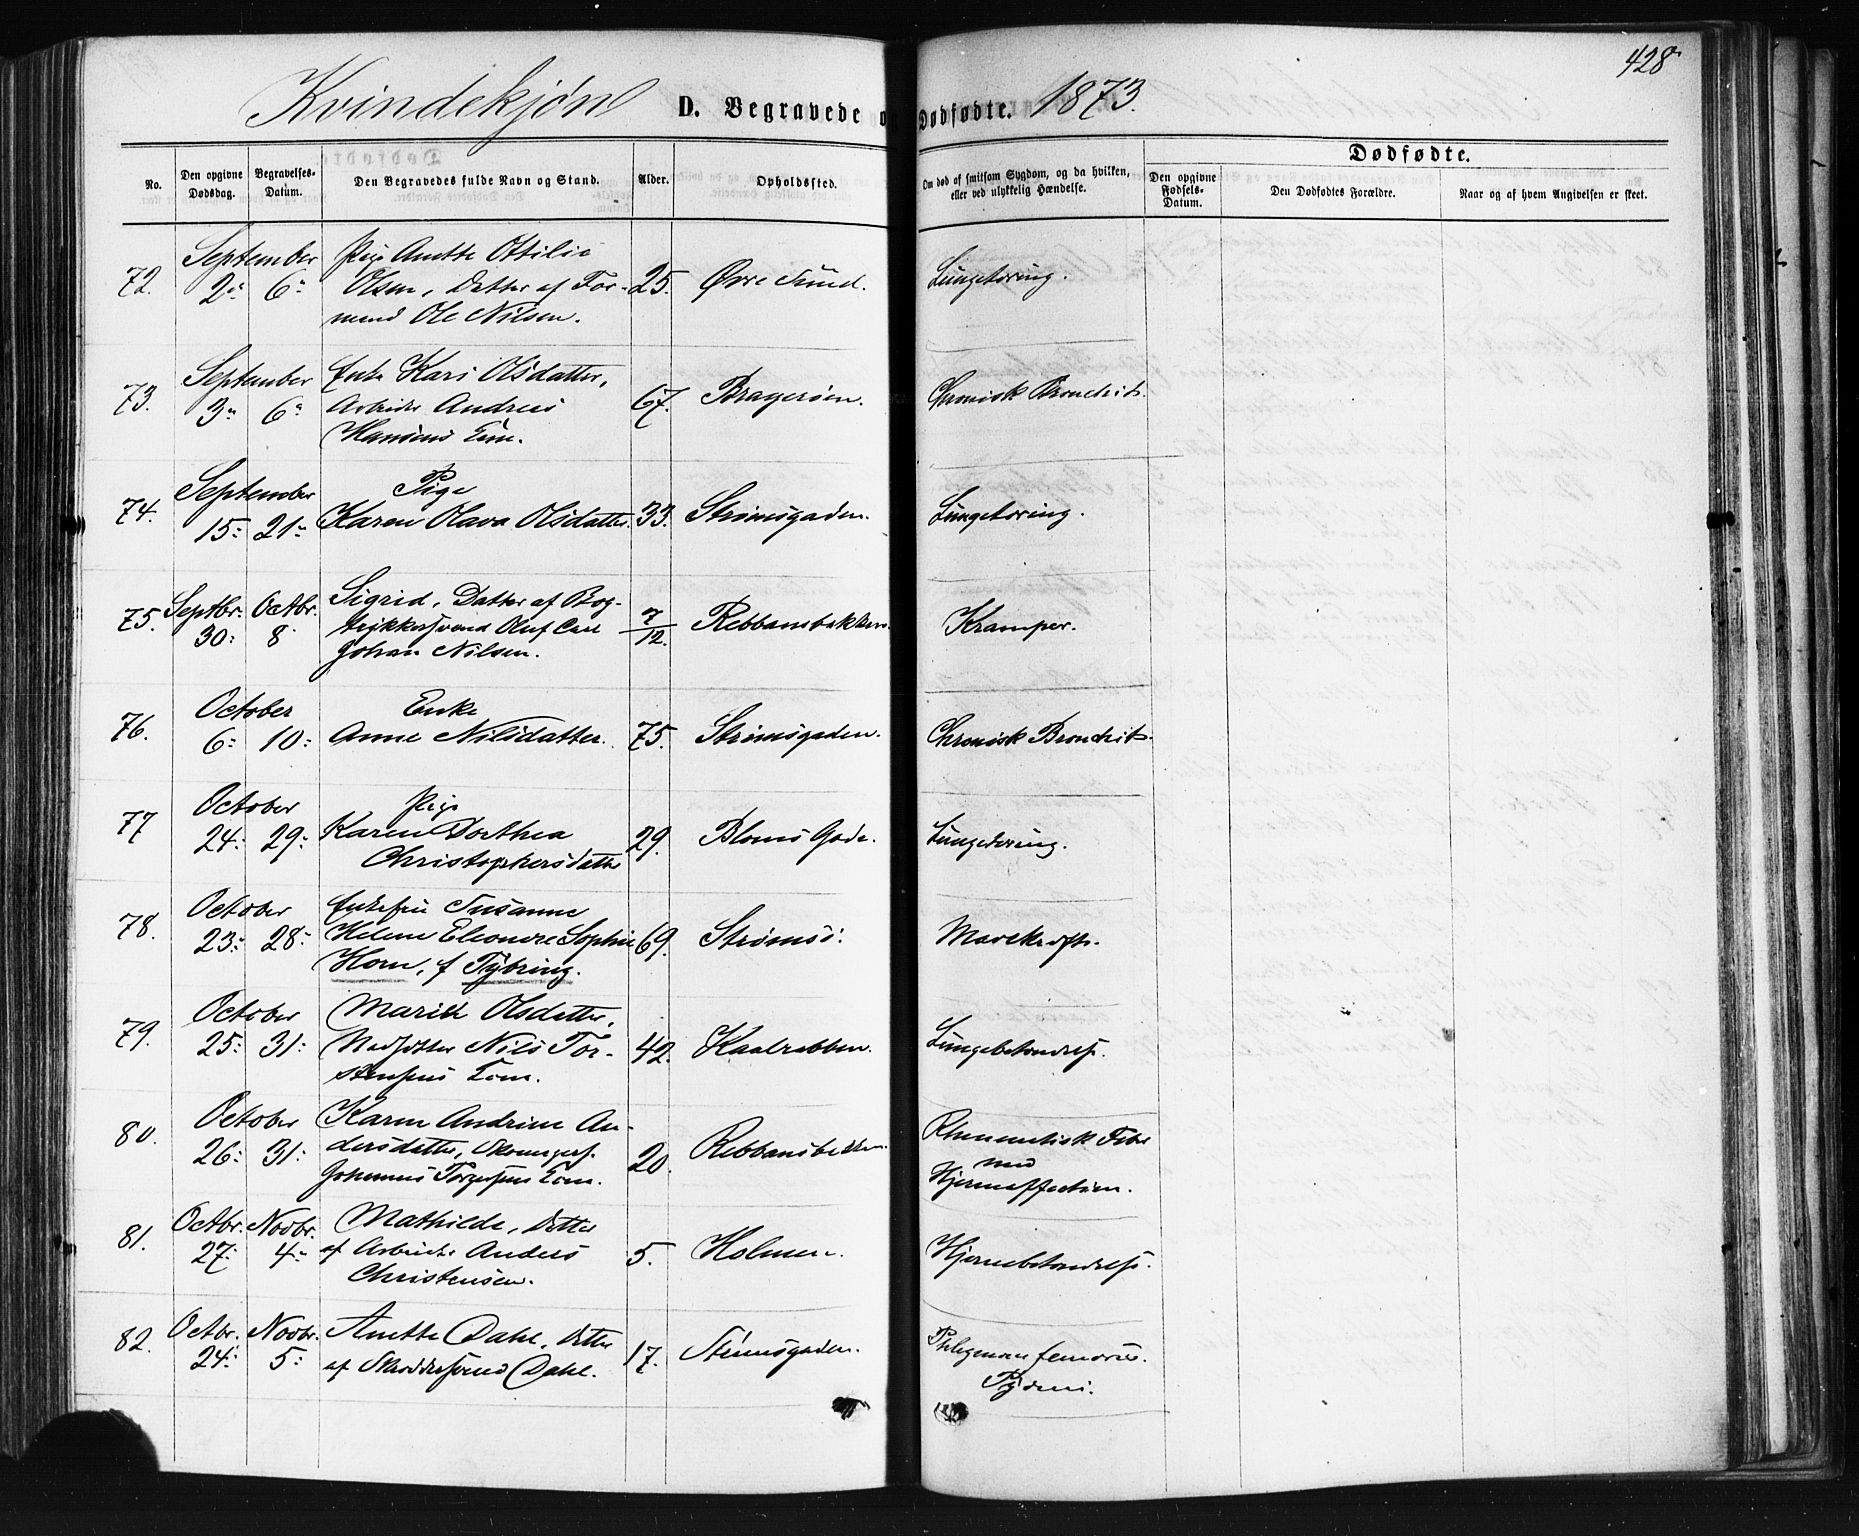 428
Kvindekjøn D. Begravede o Dødfødte. 1873.
No.
Den opgivne Dødsdag.
Begravelses-Datum.
Den Begravedes fulde Navn og Stand.
Alder.
Opholdssted.
Om død af smitsom Sygdom, og da hvilken, eller ved ulykkelig Hændelse.
Dødfødte.
Den opgivne Fødsels-Datum.
Den Dødfødtes Forældre.
Naar og af hvem Angivelsen er skeet.
September Pige Anette Ottilie
72. 2: 6: Olsen, Datter af For- 25. Øvre Sund. Lungetæring.
mand Ole Nilsen.
September Enke Kari Olsdatter,
73. 3: 6: Arbeider Andreas 67. Bragerøen. Chronisk Bronchit.
Hansens Enke.
September Pige
74. 15: 21: Karen Olava Olsdatter. 33. Strømsgaden. Lungetæring.
Septbr. Octbr. Sigrid, Datter af Bog-
75. 30: 8 trykkersvend Oluf Carl 7/12. Rebbansbakken. Kramper.
Johan Nilsen.
October Enke
76. 6: 10: Anne Nilsdatter. 75. Strømsgaden. Chronisk Bronchit.
October Pige
77 24: 29: Karen Dorthea 29. Bloms Gade. Lungetæring.
Christophersdatter
October Enkefru Susanne
78. 23: 28: Helene Eleonore Sophie 69. Strømsø. Mavekræft.
Horn, f Tybring.
October Marith Olsdatter,
79. 25: 31: Nils Tor- 42. Kaalrabben. Lungebetændelse.
stensens
October Karen Andrine An-
80. 26: 31: dersdatter, 20. Rebbansbakken. Rheumatisk Feber
Johannes Torgersens med
Hjerteaffection.
Octbr. Novbr. Mathilde, Datter
81. 27: 4: af Arbeider Anders 5. Holmen. Hjernebetændelse.
Christensen.
82. Octbr. Novbr. Anette Dahl, Datter
24: 5: af Skræddersvend Dahl. 17. Strømsgaden. Phlegmon femoris.
Pyæmi.